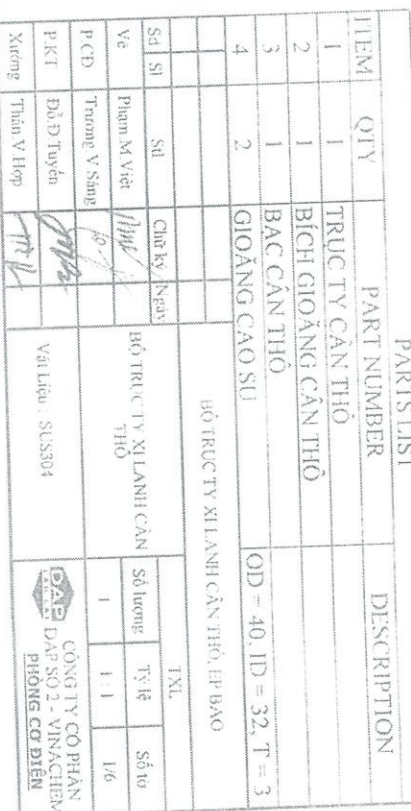 PARTS LIST
ITEM QTY PART NUMBER DESCRIPTION
1 1 TRỤC TY CÂN THÔ
2 1 BÍCH GIOĂNG CÂN THÔ
3 1 BẠC CÂN THÔ
4 2 GIOĂNG CAO SU OD = 40, ID = 32, T = 3
BỘ TRỤC TY XI LANH CÂN THÔ, EP BAO
Sđ Sl Stl Chữ ký Ngày
Vẽ Phạm M Việt
P.CĐ Trương V Sáng
P.KT Đỗ Đ Tuyến
Xưởng Thân V Hợp
BỘ TRỤC TY XI LANH CÂN
THÔ
Vật Liệu : SUS304
TXL
Số lượng Tỷ lệ Số tờ
1 1 : 1 1/6
DAP
CÔNG TY CỔ PHẦN
DAP SỐ 2 - VINACHEM
PHÒNG CƠ ĐIỆN